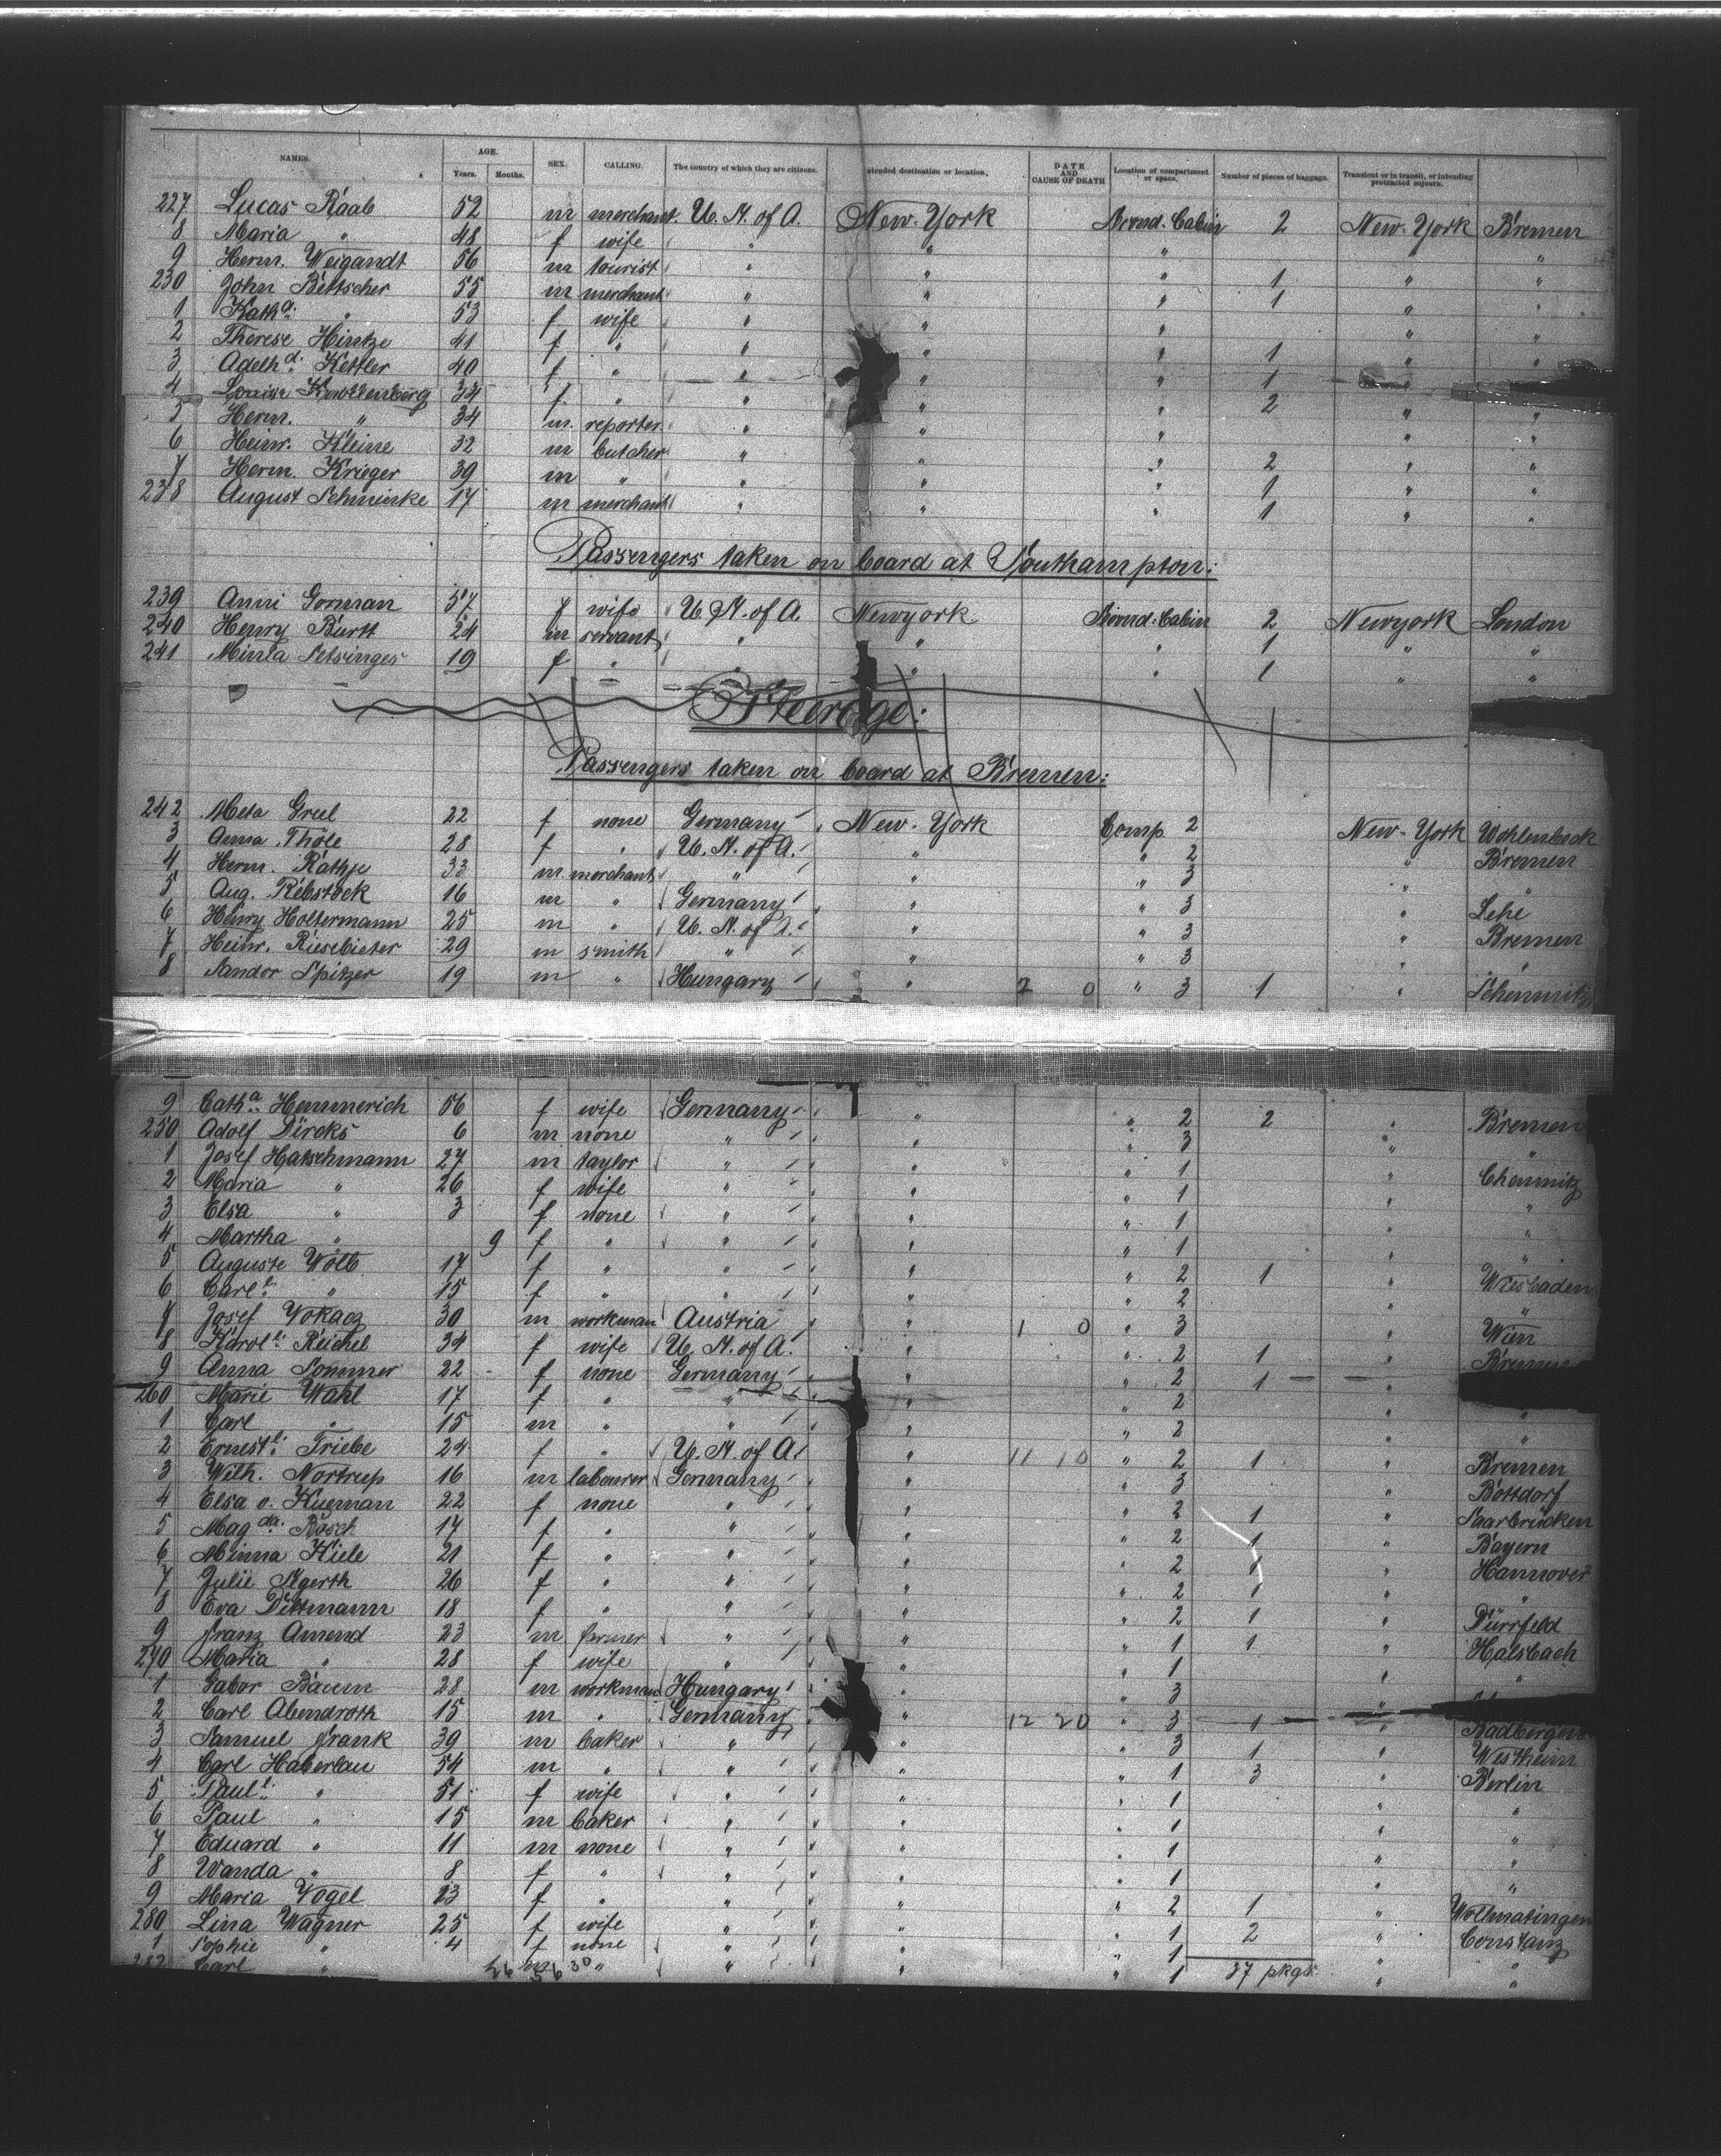 NAMES. AGE. Years. Months. SEX. CALLING. The country of which they are citizens. Intended destination or location. DATE AND CAUSE OF DEATH Location of compartment or space. Number of pieces of baggage. Transient or in transit, or intending protracted sojourn.
227 Lucas Raab 52 m merchant U. St. of A. New-York Second-Cabin 2 New-York Bremen
8 Maria " 48 f wife " " " " "
9 Herm. Weigandt 56 m tourist " " " 1 " "
230 John Bettscher 55 m merchant " " " 1 " "
1 Katha. " 53 f wife " " " " "
2 Therese Hintze 41 f " " " " 1 " "
3 Adelhd. Kettler 40 f " " " 1 "
4 Louise Knollenberg 34 f " " " " 2 " "
5 Herm. " 34 m reporter " " " "
6 Heinr. Kleine 32 m butcher " " " 2 " "
7 Herm. Krieger 39 m " " " " 1 " "
238 August Schminke 17 m merchant " " " 1 " "
Passengers taken on board at Southampton:
239 Anni Gorman 57 f wife U. St. of A. Newyork Second-Cabin 2 Newyork London
240 Henry Burtt 24 m servant " " " 1 " "
241 19 f " " " " 1 " "
Steerage:
Passengers taken on board at Bremen:
242 Meta Greel 22 f none Germany New-York Comp. 2 New-York
3 Anna Thöle 28 f " U. St. of A. " " 2 " Bremen
4 Herm. Rathje 33 m merchant " " " 3 " "
5 Aug. Rebstock 16 m " Germany " " 3 " Lehe
6 Henry Holtermann 25 m " U. St. of A. " " 3 " Bremen
7 Heinr. Riesebieter 29 m smith " " " 3 " "
8 Sandor Spitzer 19 m " Hungary " 2 0 " 3 1 "
9 Catha. Hemmerich 56 f wife Germany " " 2 2 " Bremen
250 Adolf Dircks 6 m none " " " 3 " "
1 Josef Hatschmann 27 m taylor " " " 1 " Chemnitz
2 Maria " 26 f wife " " " 1 " "
3 Elsa " 3 f none " " " 1 " "
4 Martha " 9 f " " " " 1 " "
5 Auguste Wolb 17 f " " " " 2 1 " Wiesbaden
6 Carle. " 15 f " " " " 2 " "
7 Josef 30 m workman Austria " 1 0 " 3 " Wien
8 Karole. Reichel 34 f wife U. St. of A. " " 2 1 " Bremen
9 Anna Sommer 22 f none Germany " " 2 1 "
260 Marie Wahl 17 f " " " " 2 " "
1 Carl " 15 m " " " " 2 " "
2 Erneste. Triebe 24 f " U. St. of A. " 11 10 " 2 1 " Bremen
3 Wilh. Nortrup 16 m labourer Germany " " 3 " Bottdorf
4 Elsa v. 22 f none " " " 2 1 " Saarbrücken
5 Magda. Rasch 17 f " " " " 2 1 " Bayern
6 Minna Kiele 21 f " " " " 2 1 " Hannover
7 Julie 26 f " " " " 2 1 " "
8 Eva Dittmann 18 f " " " " 2 1 " Dürrfeld
9 Franz Amend 23 m farmer " " " 1 1 " Halsbach
270 Maria " 28 f wife " " " 1 " "
1 Gabor Baum 28 m workman Hungary " " 3 "
2 Carl Abendroth 15 m " Germany " 12 20 " 3 1 " Badbergen
3 Samuel Frank 39 m baker " " " 3 1 " Westheim
4 Carl Haberlau 54 m " " " " 1 3 " Berlin
5 Paule. " 51 f wife " " " 1 " "
6 Paul " 15 m baker " " " 1 " "
7 Eduard " 11 m none " " " 1 " "
8 Wanda " 8 f " " " " 1 " "
9 Maria Vogel 23 f " " " " 2 1 " Wollmatingen
280 Lina Wagner 25 f wife " " " 1 2 " Constanz
1 Sophie " 4 f none " " " 1 " "
282 Carl " m " " " " 1 37 pkgs. " "